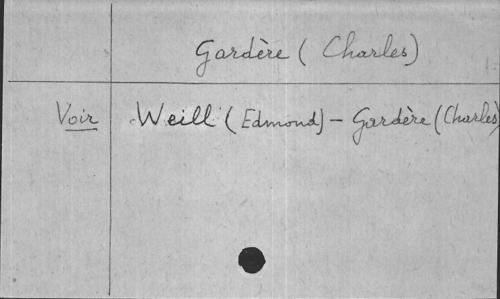 Gardère (Charles)
Voir Weill (Edmond) - Gardère (Charles)